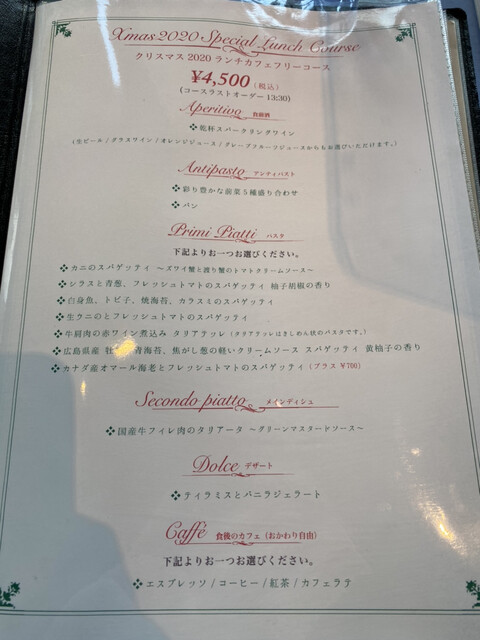 Xmas 2020 Special Lunch Course
クリスマス 2020 ランチカフェフリーコース
¥4,500（税込）
(コースラストオーダー 13:30)
Aperitivo 食前酒
❖乾杯スパークリングワイン
(生ビール / グラスワイン / オレンジジュース / グレープフルーツジュースからもお選びいただけます。)
Antipasto アンティパスト
❖彩り豊かな前菜 5 種盛り合わせ
❖パン
Primi Piatti パスタ
下記よりお一つお選びください。
❖カニのスパゲッティ ～ズワイ蟹と渡り蟹のトマトクリームソース～
❖シラスと青葱、フレッシュトマトのスパゲッティ 柚子胡椒の香り
❖白身魚、トビ子、焼海苔、カラスミのスパゲッティ
❖生ウニのとフレッシュトマトのスパゲッティ
❖牛肩肉の赤ワイン煮込み タリアテッレ（タリアテッレはきしめん状のパスタです。）
❖広島県産 牡 青海苔、焦がし葱の軽いクリームソース スパゲッティ 黄柚子の香り
❖カナダ産オマール海老とフレッシュトマトのスパゲッティ（プラス ¥700）
Secondo piatto メインディシュ
❖国産牛フィレ肉のタリアータ ～グリーンマスタードソース～
Dolce デザート
❖ティラミスとバニラジェラート
Caffé 食後のカフェ（おかわり自由）
下記よりお一つお選びください。
❖エスプレッソ / コーヒー / 紅茶 / カフェラテ